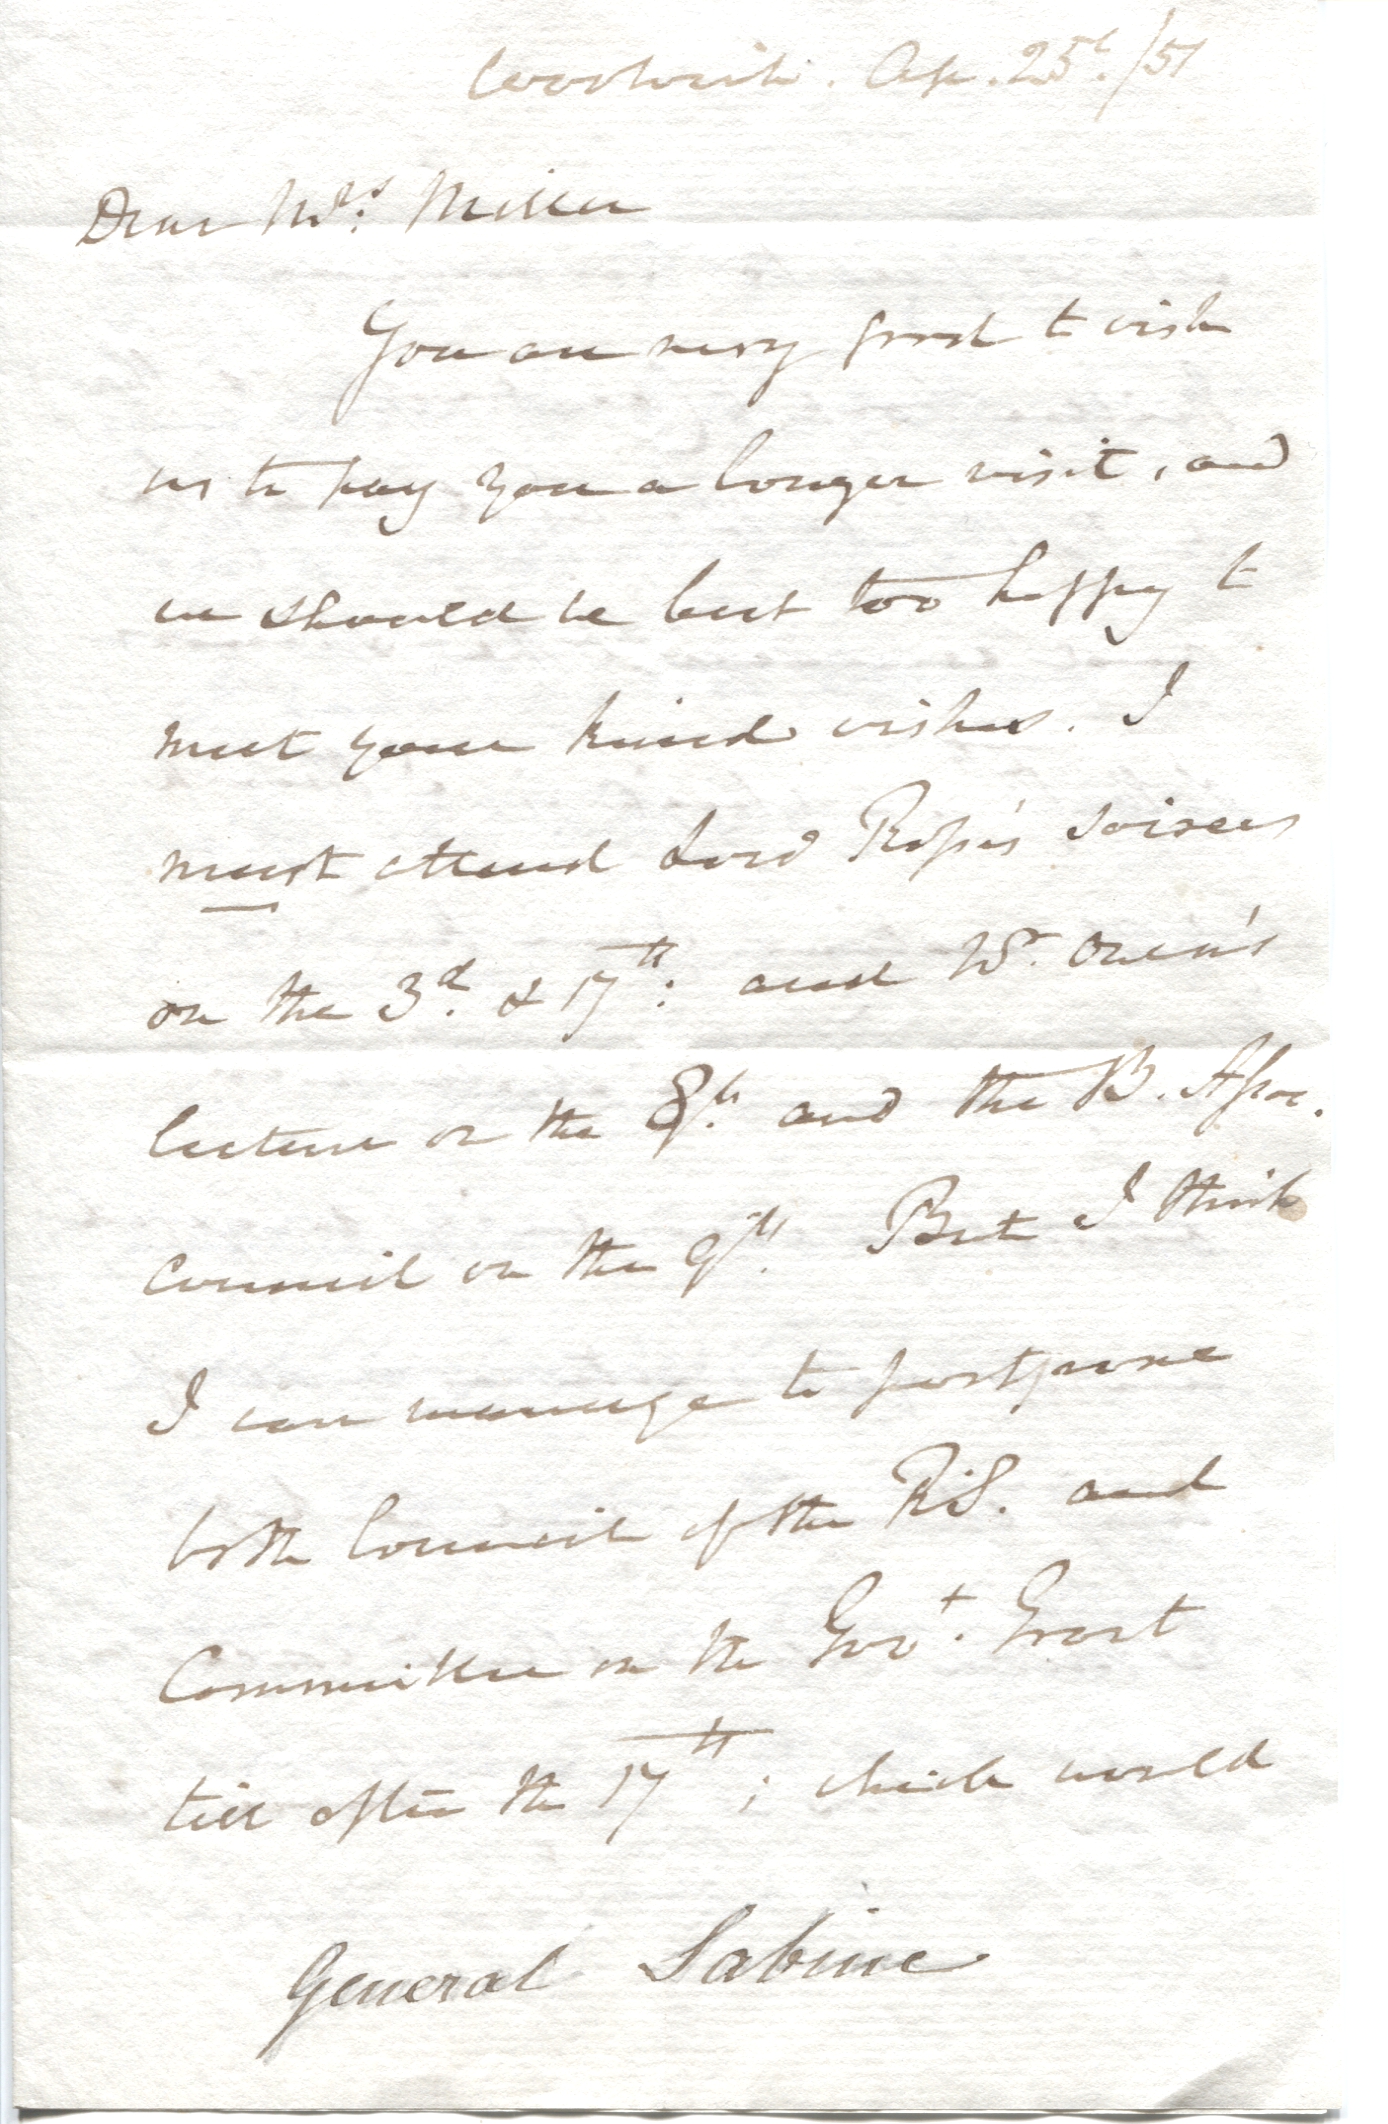 Woolwich. Ap. 25th./51
Dear Mrs. Miller
You are very good to wish
us to pay you a longer visit, and
we should be but too happy to
meet your kind wishes. I
must attend Lord Rosse's soirees
on the 3d. & 17th: and Mr. Owen's
lecture on the 8th. and the B. Assoc.
Council on the 9th. But I think
I can manage to postpone
both Council of the R.S. and
Committee on the Govt. Grant
till after the 17th; which would
General Sabine